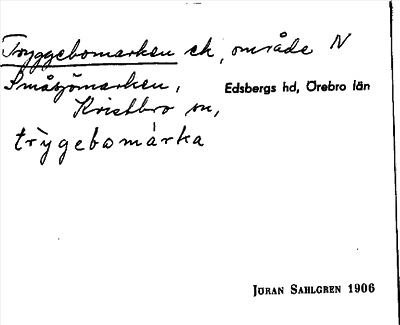 Tryggebomarken ek, område N
Småsjömarken,
Edsbergs hd, Örebro län
Knistbro sn,
trỳgebomárka
JÖRAN SAHLGREN 1906